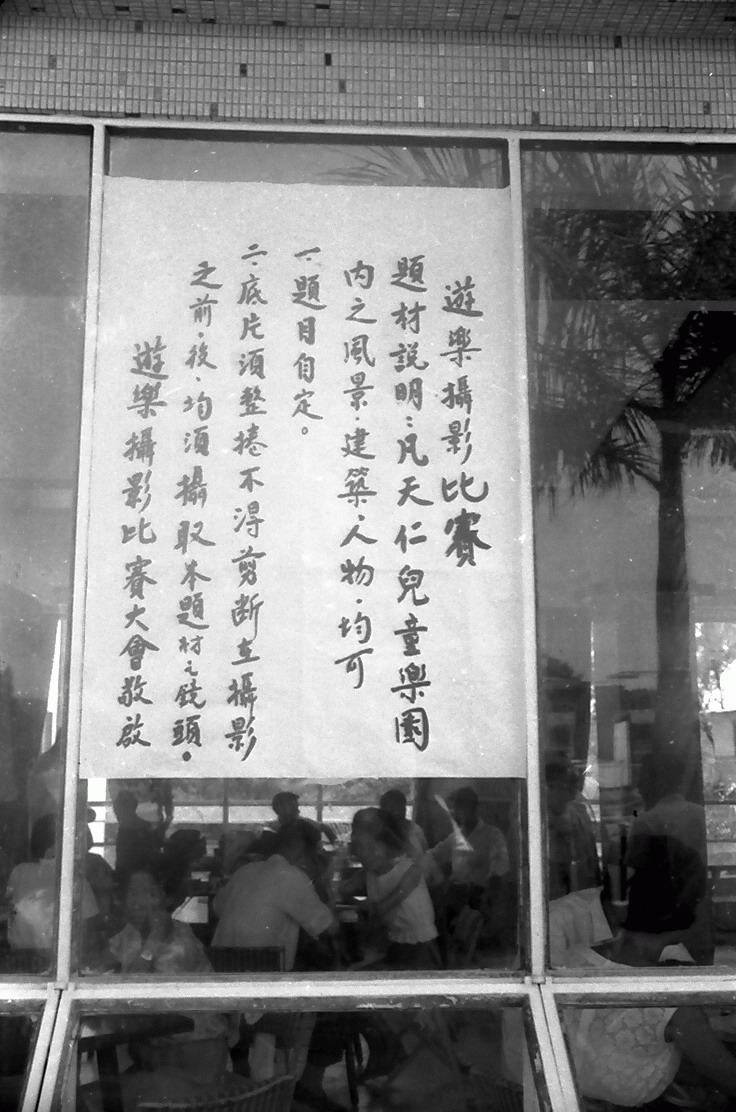 遊樂攝影比賽
題材説明：凡天仁兒童樂園
内之風景·建築·人物·均可
一·題目自定。
二·底片須整捲不得剪断在攝影
之前·後·均須攝取本題材之鏡頭。
遊樂攝影比賽大會敬啟